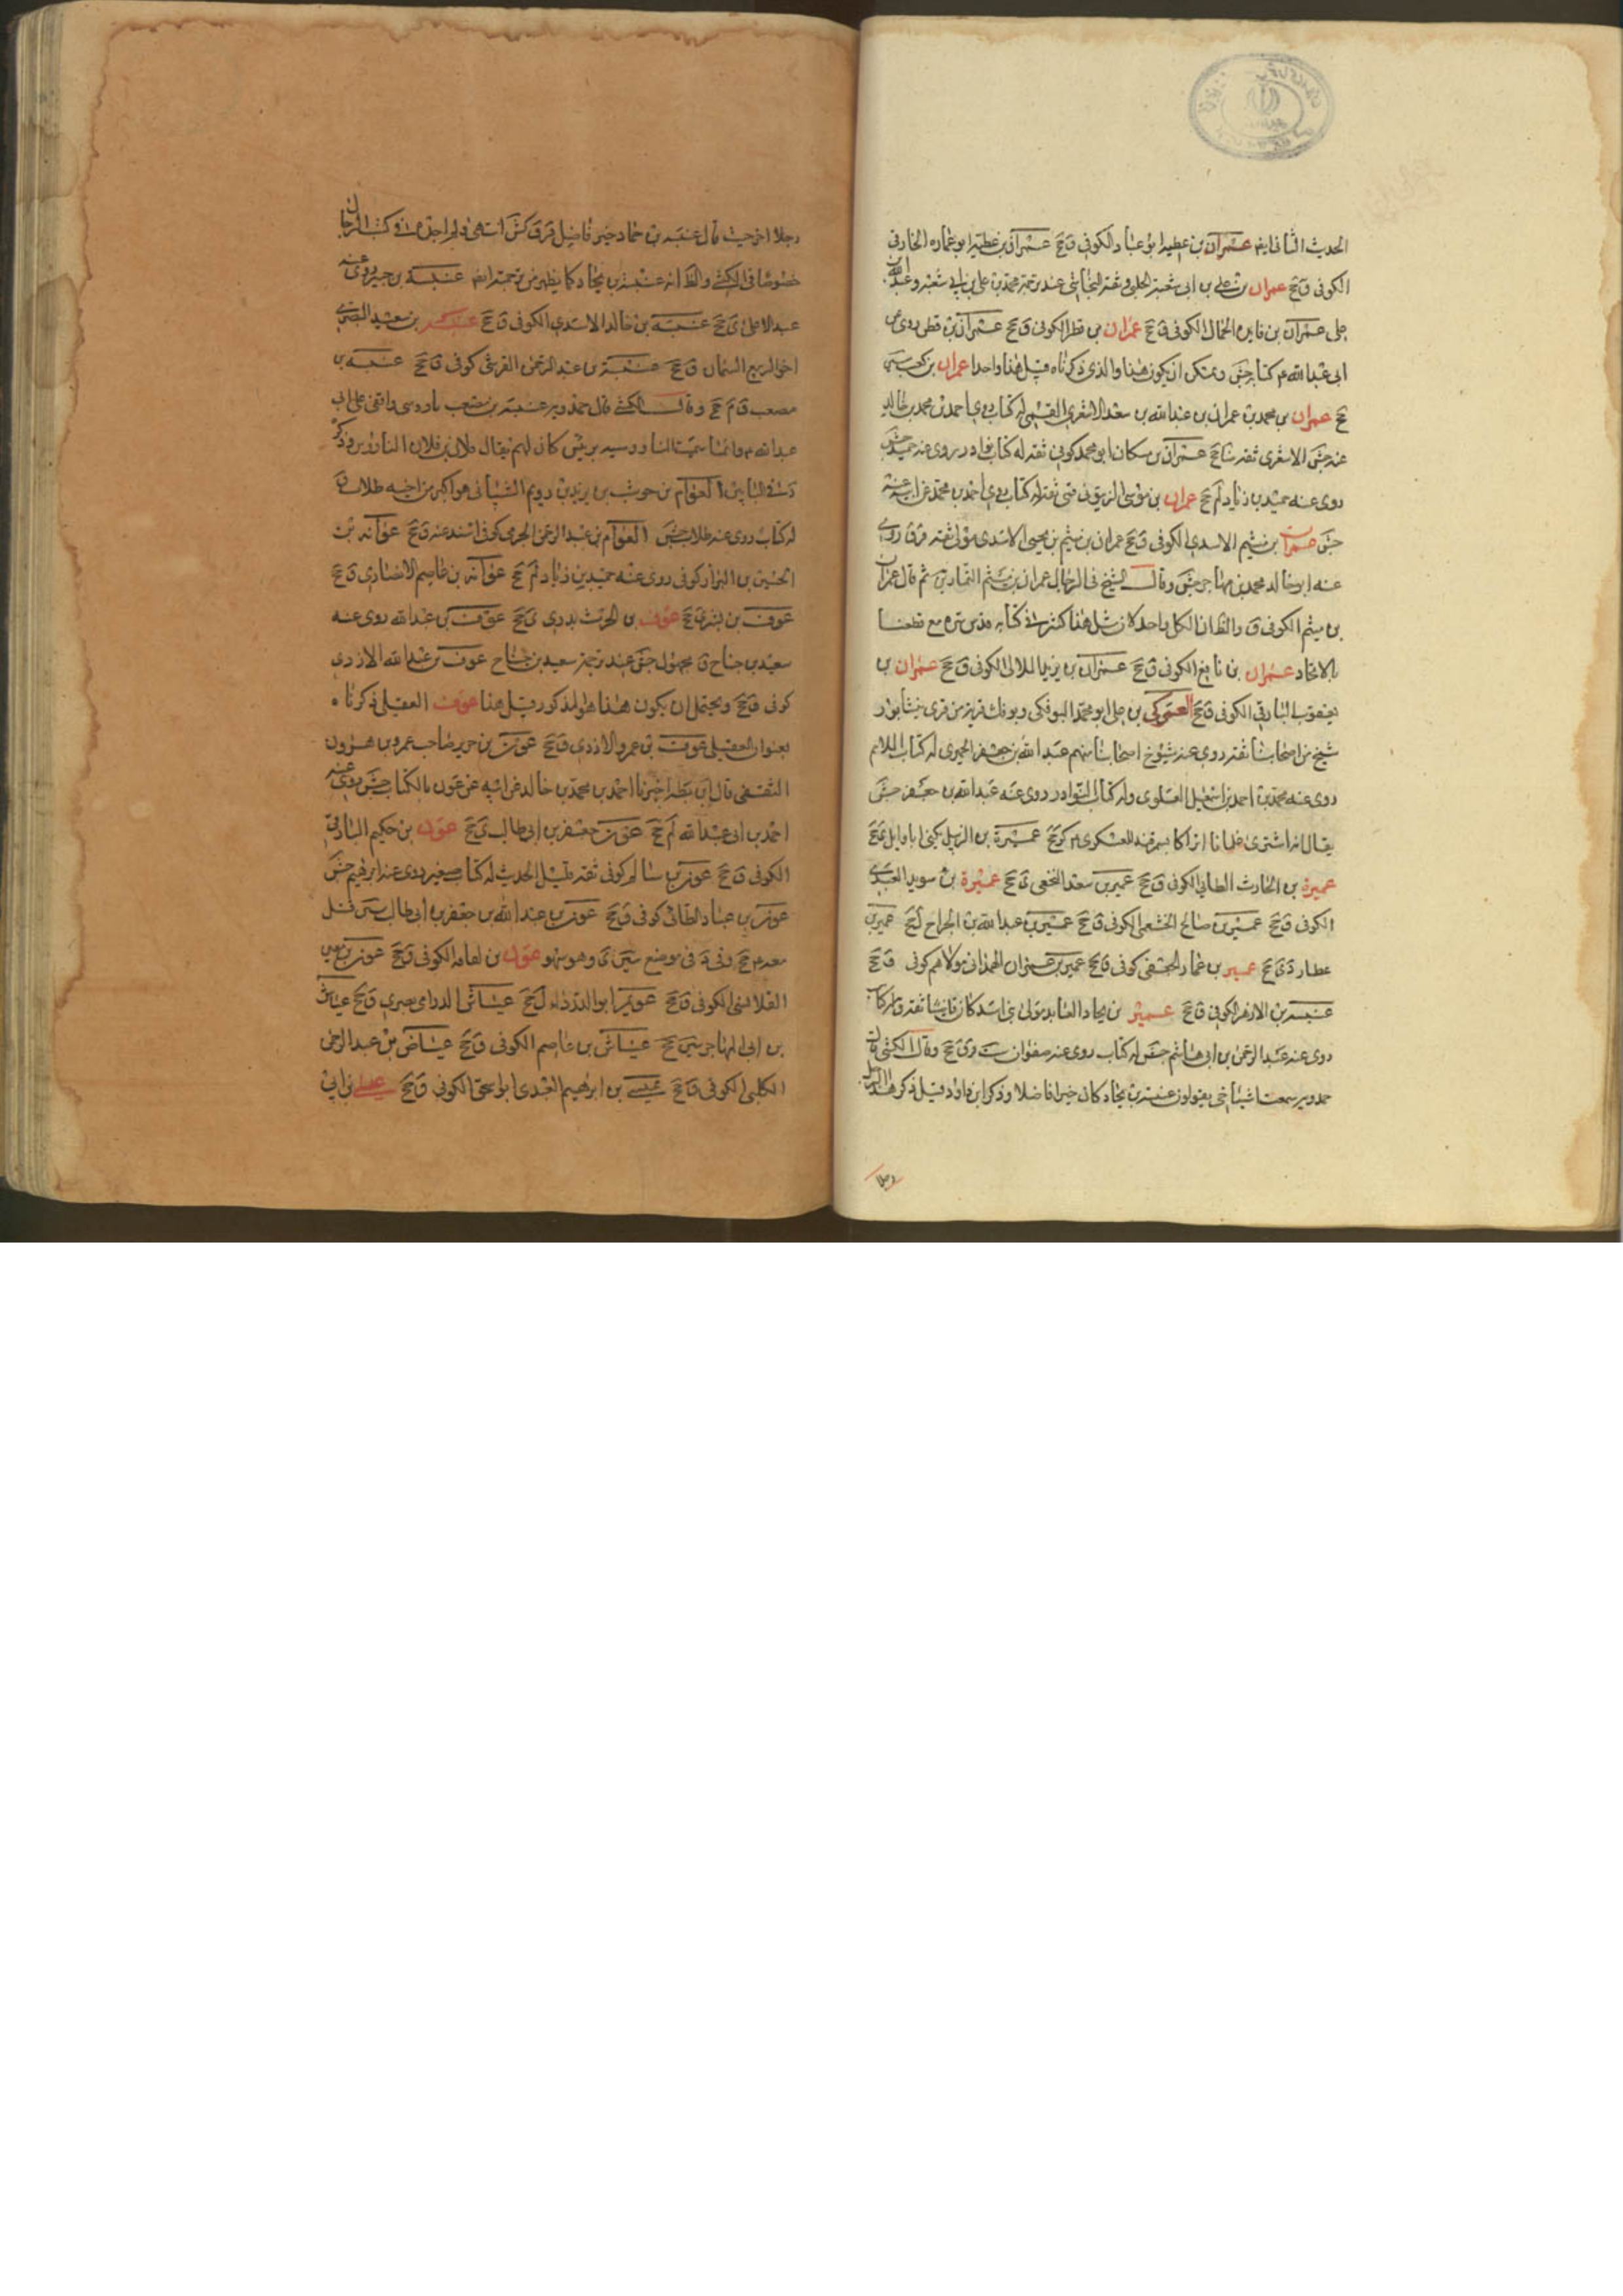 الحديث الثانى ايضا عمران بن عطيه ابو عباد الكوفى ق جخ عمران بن عطيه ابو عماره الخارفى
الكوفى ق جخ عمران بن على بن ابى شعبة الحلبى وثقه النجاشى عند ترجمة محمد بن على بن ابى شعبة وعبد الله بن
على عمران بن فايد الحمال الكوفى ق جخ عمران بن قطر الكوفى ق جخ عمران بن قطن روى عن
ابى عبد الله ع كتابه جش ويمكن ان يكون هذا والذى ذكرناه قبيل هذا واحدا عمران بن كعب سين
جخ عمران بن محمد بن عمران بن عبد الله بن سعد الاشعرى القمى له كتاب روى احمد بن محمد بن خالد
عنه جش الاشعرى ثقه ضا جخ عمران بن مسكان ابو محمد كوفى ثقه له كتاب نوادر روى عنه حميد جش
روى عنه حميد بن زياد لم جخ عمران بن موسى الزيتونى قمى ثقه له كتاب روى احمد بن محمد عن ابيه عنه
جش عمران بن ميثم الاسدى الكوفى ق جخ عمران بن ميثم بن يحيى الاسدى مولى ثقه قر ق روى
عنه ابو خالد محمد بن مهاجر جش وقال الشيخ فى الرجال عمران بن ميثم التمار ين ثم قال عمران
بن ميثم الكوفى ق والظ ان الكل واحد لان مثل هذا كثير فى كتابه قدس سره مع قطعنا
بالاتحاد عمران بن نافع الكوفى ق جخ عمران بن يزيد اللالى الكوفى ق جخ عمران بن
يعقوب البارقى الكوفى ق جخ العمركى بن على ابو محمد البوفكى وبوفك قرية من قرى نيشابور
شيخ من اصحابنا ثقه روى عنه شيوخ اصحابنا منهم عبد الله بن جعفر الحميرى له كتاب الملاحم
روى عنه محمد بن احمد بن اسمعيل العلوى وله كتاب النوادر روى عنه عبد الله بن جعفر جش
يقال انه اشترى غلمانا اتراكا بسمرقند للعسكرى ع كر جخ عميرة بن الزميل يكنى ابا وايل ى جخ
عميرة بن الحارث الطايى الكوفى ق جخ عمير بن سعد النخعى ى جخ عميرة بن سويد العبدى
الكوفى ق جخ عمير بن صالح الخثعمى الكوفى ق جخ عمير بن عبد الله بن الجراح ل جخ عمير بن
عطارد ى جخ عمير بن عمار الجعفى كوفى ق جخ عمير بن عمران الهمدانى مولاهم كوفى ق جخ
عنبسة بن الازهر الكوفى ق جخ بن بجاد العابد مولى بنى اسد كان قاضيا ثقه ق له كتاب
روى عنه عبد الرحمن بن ابى هاشم جش له كتاب روى عنه صفوان ست ق جخ وقال الكشى قال
حمدويه سمعت اشياخى يقولون عنبسة بن بجاد كان خيرا فاضلا وذكر ابن داود قبيل ذكر هذا الرجل
رجلا
رجلا اخر حيث قال عنبسه بن حماد خير فاضل قر ق كش انتهى ولم اجده فى كتب الرجال
خصوصا فى الكشى والظ انه عنبسة بن بجاد كما يظهر من ترجمته ايضا عنبسة بن جبير روى عنه
عبد الاعلى ى جخ عنبسه بن خالد الاسدى الكوفى ق جخ عنبسه بن سعيد البصرى
اخو الربيع السمان ق جخ عنبسة بن عبد الرحمن القرشى كوفى ق جخ عنبسه بن
مصعب ق م جخ وقال الكشى قال حمدويه عنبسة بن مصعب ناووسى واقفى على ابى
عبد الله ع وانما سميت الناووسيه برئيس كان لهم يقال فلان بن فلان الناووس وذكر
فى البابين العوام بن حوشب بن يزيد بن رويم الشيبانى هو اكبر من اخيه طلاب ق
له كتاب روى عنه طلاب جش العوام بن عبد الرحمن الجرمى كوفى اسند عنه ق جخ عوانه بن
الحسين بن البزاز كوفى روى عنه حميد بن زياد لم جخ عوانه بن عاصم الانصارى ق جخ
عوف بن بشر ى جخ عوف بن الحرث بدرى ى جخ عوف بن عبد الله روى عنه
سعيد بن جناح ق مجهول جش عند ترجمة سعيد بن جناح عوف بن عبد الله الازدى
كوفى ق جخ ويحتمل ان يكون هذا هو المذكور قبيل هذا عوف العقيلى ذكرناه
بعنوان العقيلى عوف بن عمرو الازدى ق جخ عون بن جرير صاحب عمرو بن هرون
الثقفى قال ابن بطه اخبرنا احمد بن محمد بن خالد عن ابيه عن عون بالكتاب جش روى عنه
احمد بن ابى عبد الله لم جخ عون بن جعفر بن ابى طالب ى جخ عون بن حكيم البارقى
الكوفى ق جخ عون بن سالم كوفى ثقه قليل الحديث له كتاب صغير روى عنه ابرهيم جش
عون بن عباد الطائى كوفى ق جخ عون بن عبد الله بن جعفر بن ابى طالب سين قتل
معه ع جخ وفى د فى موضع سين ى وهو سهو عون بن الكوفى ق جخ عون بن معين
القلانسى الكوفى ق جخ عويمر ابو الدرداء ل جخ عياش بصرى ق جخ عياش
بن ابى المهاجر سين جخ عياش بن عاصم الكوفى ق جخ عياض بن عبد الرحمن
الكلبى الكوفى ق جخ عيسى بن ابرهيم العبدى ابو اسحق الكوفى ق جخ عيسى بن ابى